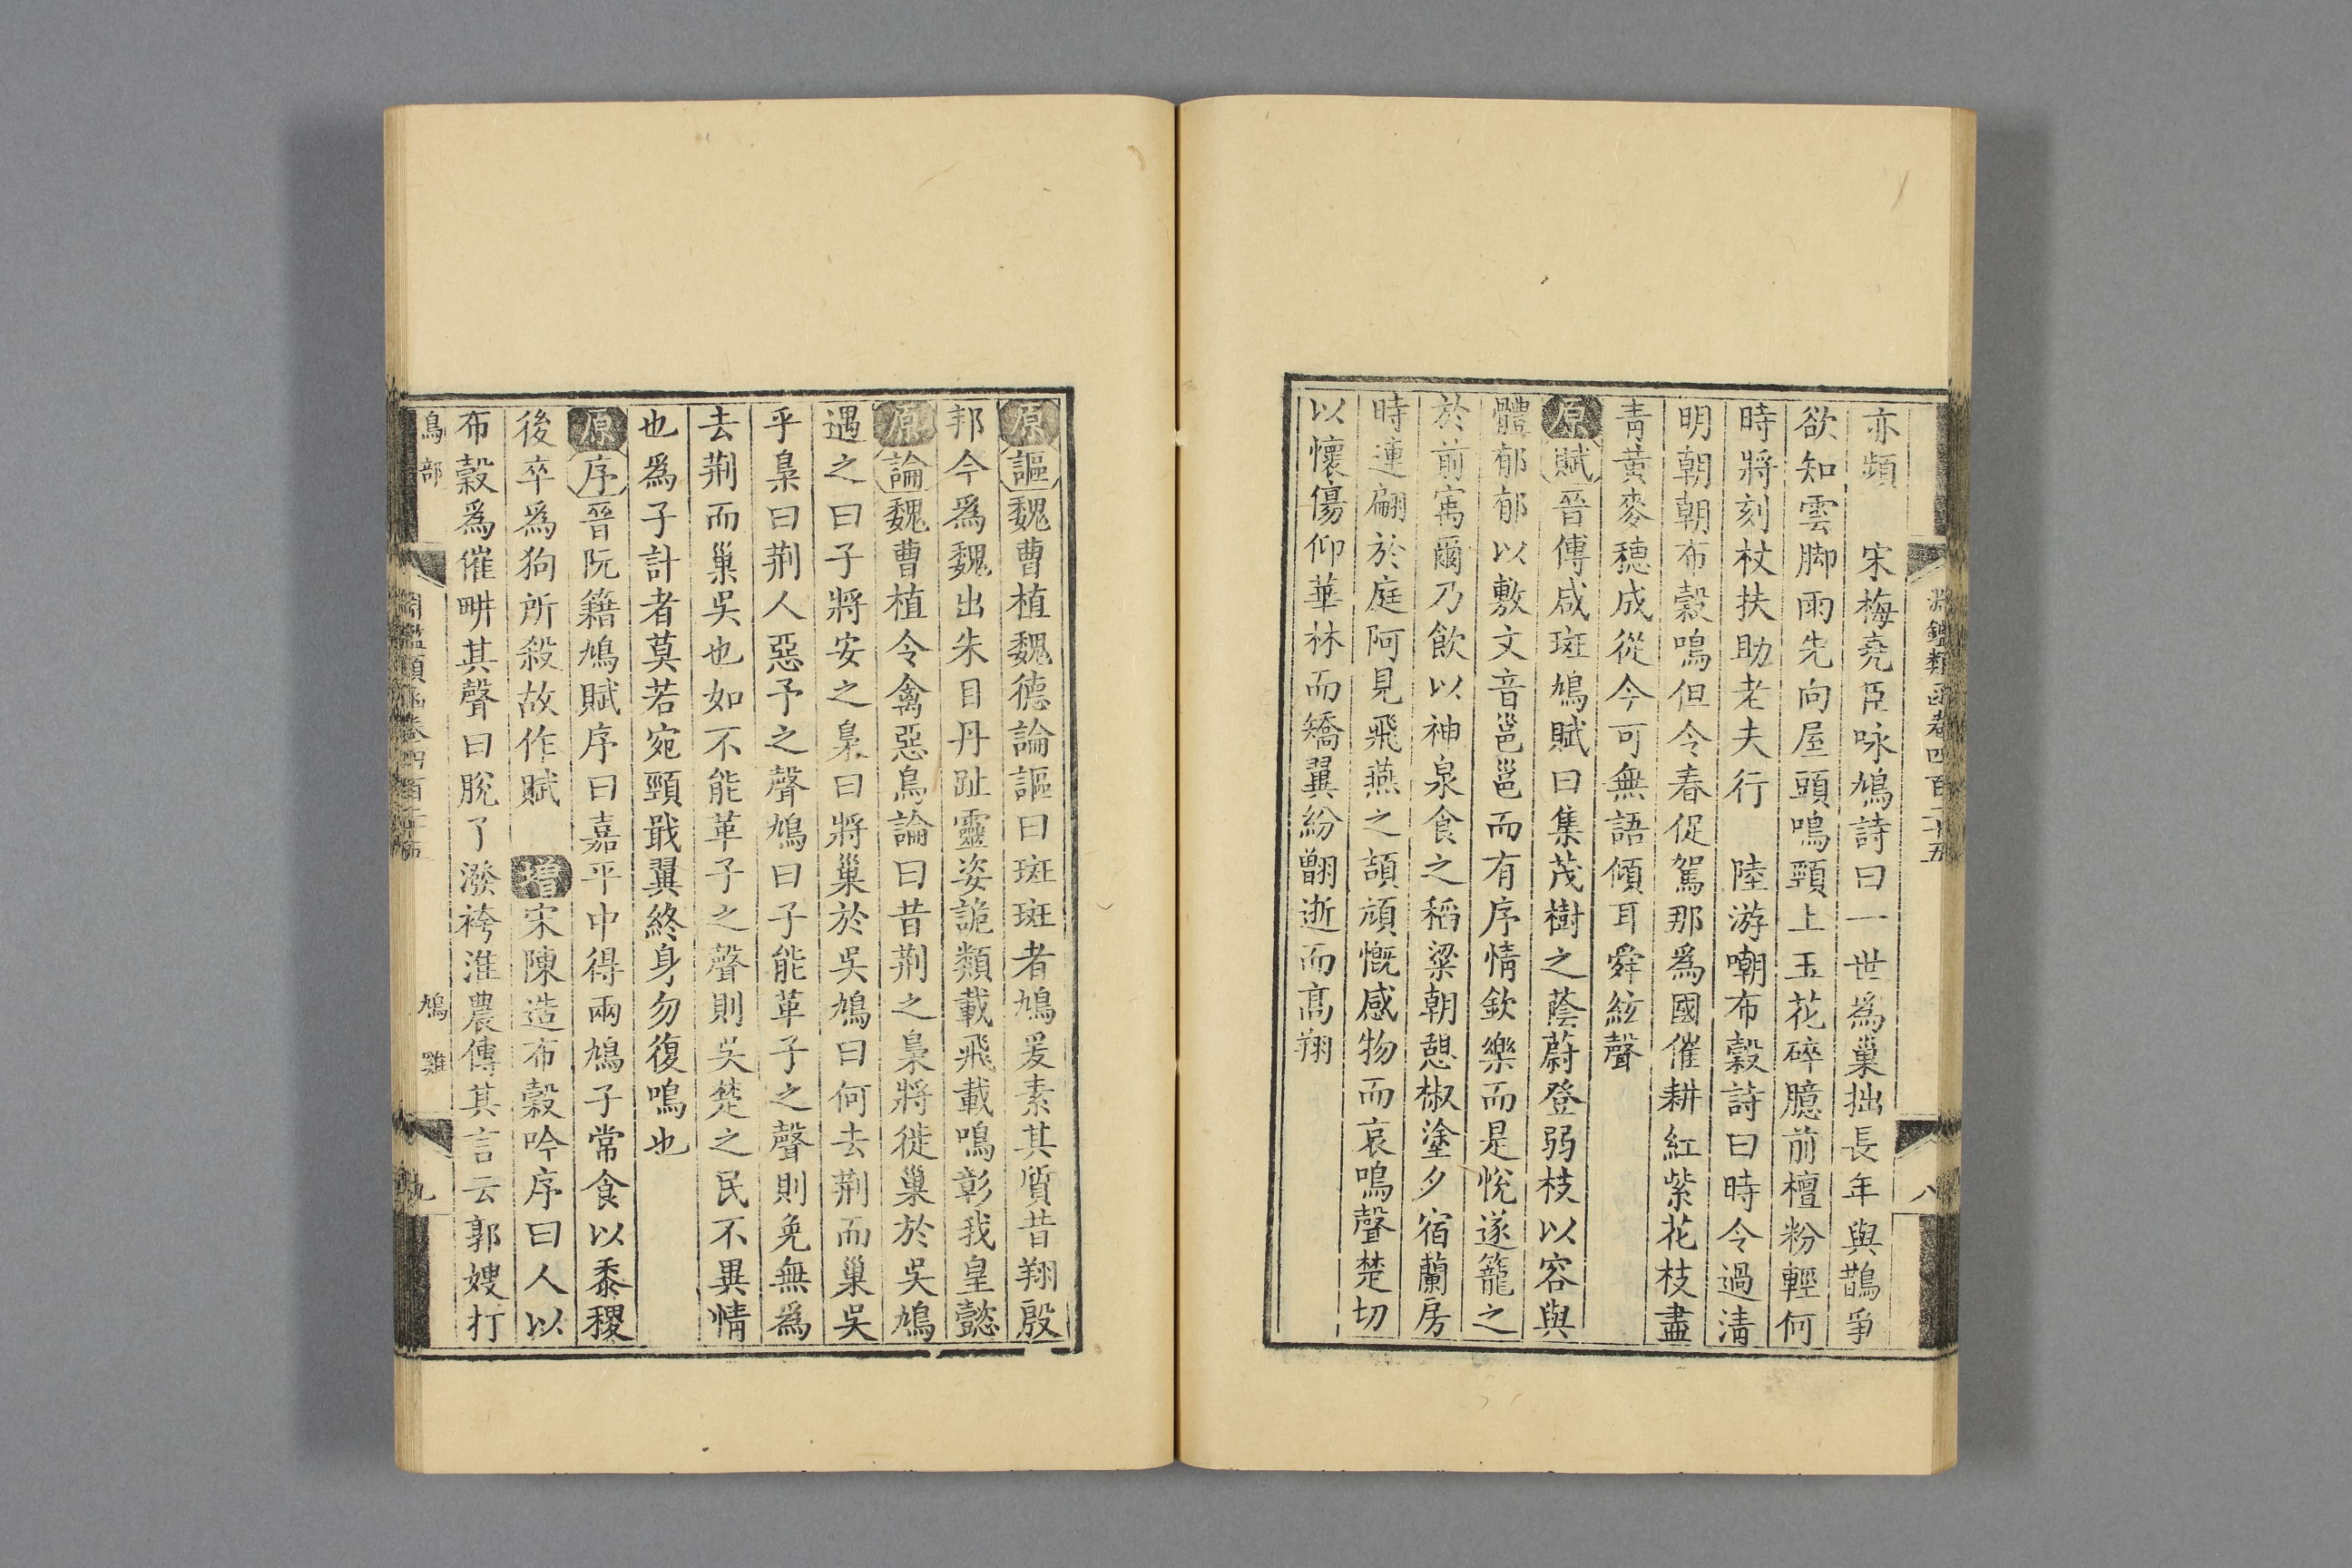 淵鑑類函卷四百二十五
八
亦頻　宋梅堯臣咏鳩詩曰一世爲巢拙長年與鵲爭
欲知雲脚雨先向屋頭鳴頸上玉花碎臆前檀粉輕何
時將刻杖扶助老夫行　陸游嘲布穀詩曰時令過淸
明朝朝布穀鳴但令春促駕那爲國催耕紅紫花枝盡
靑黃麥穗成從今可無語傾耳舜絃聲
原賦晉傅咸斑鳩賦曰集茂樹之蔭蔚登弱枝以容與
體郁郁以敷文音邕邕而有序情欽樂而是悅遂籠之
於前寓爾乃飮以神泉食之稻粱朝憩椒塗夕宿蘭房
時連翩於庭阿見飛燕之頡頏慨感物而哀鳴聲楚切
以懷傷仰華林而矯翼紛翻逝而高翔
原謳魏曹植魏德論謳曰斑斑者鳩爰素其質昔翔殷
邦今爲魏出朱目丹趾靈姿詭類載飛載鳴彰我皇懿
原論魏曹植令禽惡鳥論曰昔荆之梟將徙巢於吳鳩
遇之曰子將安之梟曰將巢於吳鳩曰何去荆而巢吳
乎梟曰荆人惡予之聲鳩曰子能革子之聲則免無爲
去荆而巢吳也如不能革子之聲則吳楚之民不異情
也爲子計者莫若宛頸戢翼終身勿復鳴也
原序晉阮籍鳩賦序曰嘉平中得兩鳩子常食以黍稷
後卒爲狗所殺故作賦　增宋陳造布穀吟序曰人以
布穀爲催畊其聲曰脫了潑袴淮農傳其言云郭嫂打
鳥部　鳩　雞
九